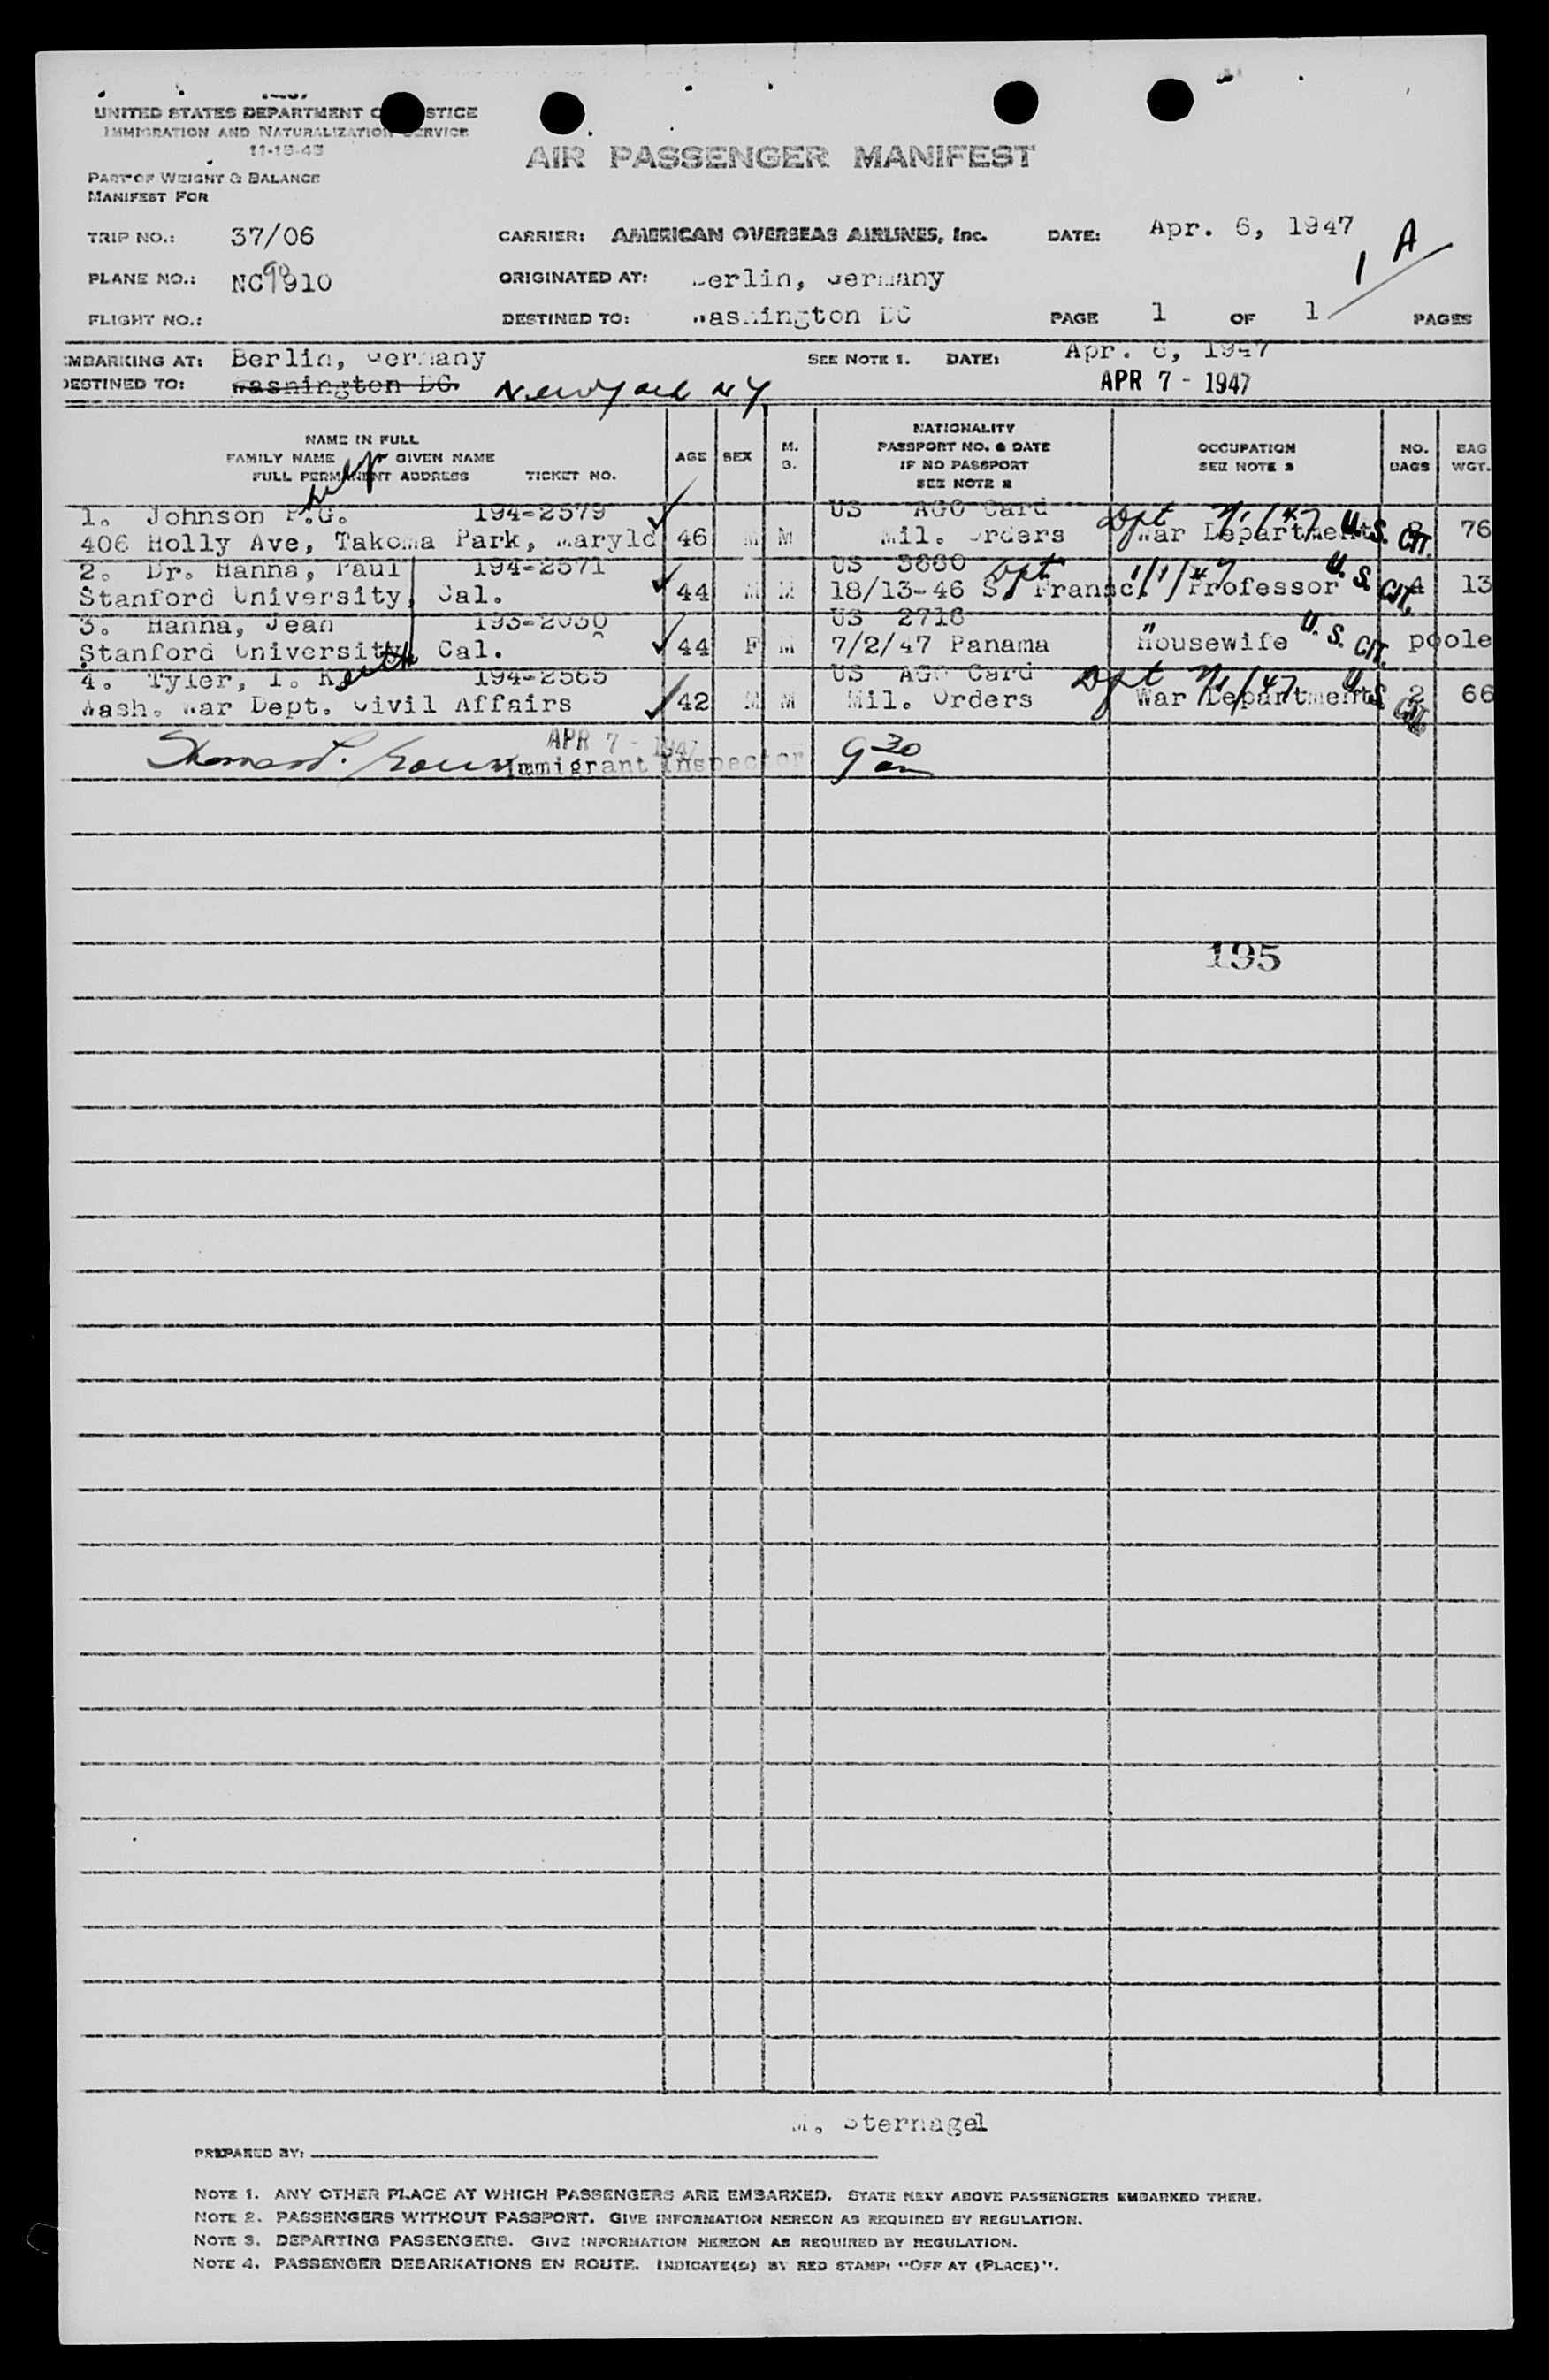 UNITED STATES DEPARTMENT O STICE
IMMIGRATION AND NATURALIZATION SERVICE
11-15-45
AIR PASSENGER MANIFEST
PART OF WEIGHT & BALANCE
MANIFEST FOR
TRIP NO.: 37/06 CARRIER: AMERICAN OVERSEAS AIRLINES, Inc. DATE: Apr. 6, 1947
1 A
PLANE NO.: NC 90910 ORIGINATED AT: Berlin, Germany
FLIGHT NO.: DESTINED TO: Washington DC PAGE 1 OF 1 PAGES
EMBARKING AT: Berlin, Germany SEE NOTE 1. DATE: Apr. 6, 1947
DESTINED TO: Washington DC. New York NY APR 7 - 1947
NAME IN FULL
FAMILY NAME GIVEN NAME
FULL PERMANENT ADDRESS TICKET NO.
AGE SEX M. S.
NATIONALITY
PASSPORT NO. & DATE
IF NO PASSPORT
SEE NOTE 2
OCCUPATION
SEE NOTE 3
NO. BAGS
BAG WGT.
1. Johnson P.G. 194-2579 US AGO Card Dpt 1/1/47 U.S. CIT.
406 Holly Ave, Takoma Park, Maryld 46 M M Mil. Orders War Department 76
2. Dr. Hanna, Paul 194-2571 US 3660 Dpt 1/1/47 U.S. CIT.
Stanford University, Cal. 44 M M 18/13-46 S. Fransc. Professor 4 13
3. Hanna, Jean 193-2030 US 2716 " U.S. CIT.
Stanford University, Cal. 44 F M 7/2/47 Panama Housewife poole
4. Tyler, I. Keith 194-2565 US AGO Card Dpt 1/1/47 U.S. CIT.
Wash. War Dept. Civil Affairs 42 M M Mil. Orders War Department 2 66
APR 7 - 1947
Immigrant Inspector 9 30 am
195
M. Sternagel
PREPARED BY:
NOTE 1. ANY OTHER PLACE AT WHICH PASSENGERS ARE EMBARKED. STATE NEXT ABOVE PASSENGERS EMBARKED THERE.
NOTE 2. PASSENGERS WITHOUT PASSPORT. GIVE INFORMATION HEREON AS REQUIRED BY REGULATION.
NOTE 3. DEPARTING PASSENGERS. GIVE INFORMATION HEREON AS REQUIRED BY REGULATION.
NOTE 4. PASSENGER DEBARKATIONS EN ROUTE. INDICATE(D) BY RED STAMP: "OFF AT (PLACE)".